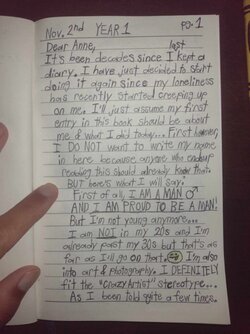 Nov. 2nd YEAR 1 PG. 1
Dear Anne,
It's been decades since I last kept a
diary. I have just decided to start
doing it again since my loneliness
has recently started creeping up
on me. I'll just assume my first
entry in this book should be about
me & what I did today... First however,
I DO NOT want to write my name
in here because anyone who endsup
reading this should already know that.
BUT here's what I will say.
First of all, I AM A MAN ♂
AND I AM PROUD TO BE A MAN!
But I'm not young anymore...
I am NOT in my 20s and I'm
already past my 30s but that's as
far as I'll go on that. I'm also
into art & photography. I DEFINITELY
fit the "Crazy Artist" stereotype...
As I been told quite a few times.